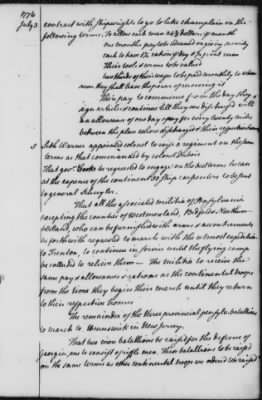 1776
July 3
contract with shipwrights to go to lake champlain on the
following terms. To allow each man 34⅔ dollars & month
one months pay to be advanced on giving security
each to have 1½ ration & day & ½ pint rum
Their tools & arms to be valued
two thirds of their wages to be paid monthly to whom
soever they shall have the power of receiving it
Their pay to commence from the day they
sign articles & continue till they are discharged with
an allowance of one days pay for every twenty miles
between the place where discharged & their respective homes
5 Seth Warner appointed colonel to raise a regiment on the same
terms as that commanded by colonel Dubois
That govr Cooke be requested to engage on the best terms he can
at the expence of the continent 50 ship carpenters to be sent
to general Schuyler.
That all the associated militia of Pensylvania
excepting the counties of Westmoreland, Bedford & Northum-
berland, who can be furnished with arms & accoutrements
be forthwith requested to march with the utmost expedition
to Trenton, to continue in service until the flying camp
be collected to relieve them. The militia to receive the
same pay & allowances & rations as the continental troops
from the time they begin their march until they return
to their respective homes
The remainder of the three provincial pensylva battalions
to march to Brunswick in New Jersey.
That two more battalions be raised for the defence of
georgia, one to consist of riflemen. These battalions to be raised
on the same terms as other continental troops are ordered to be raised